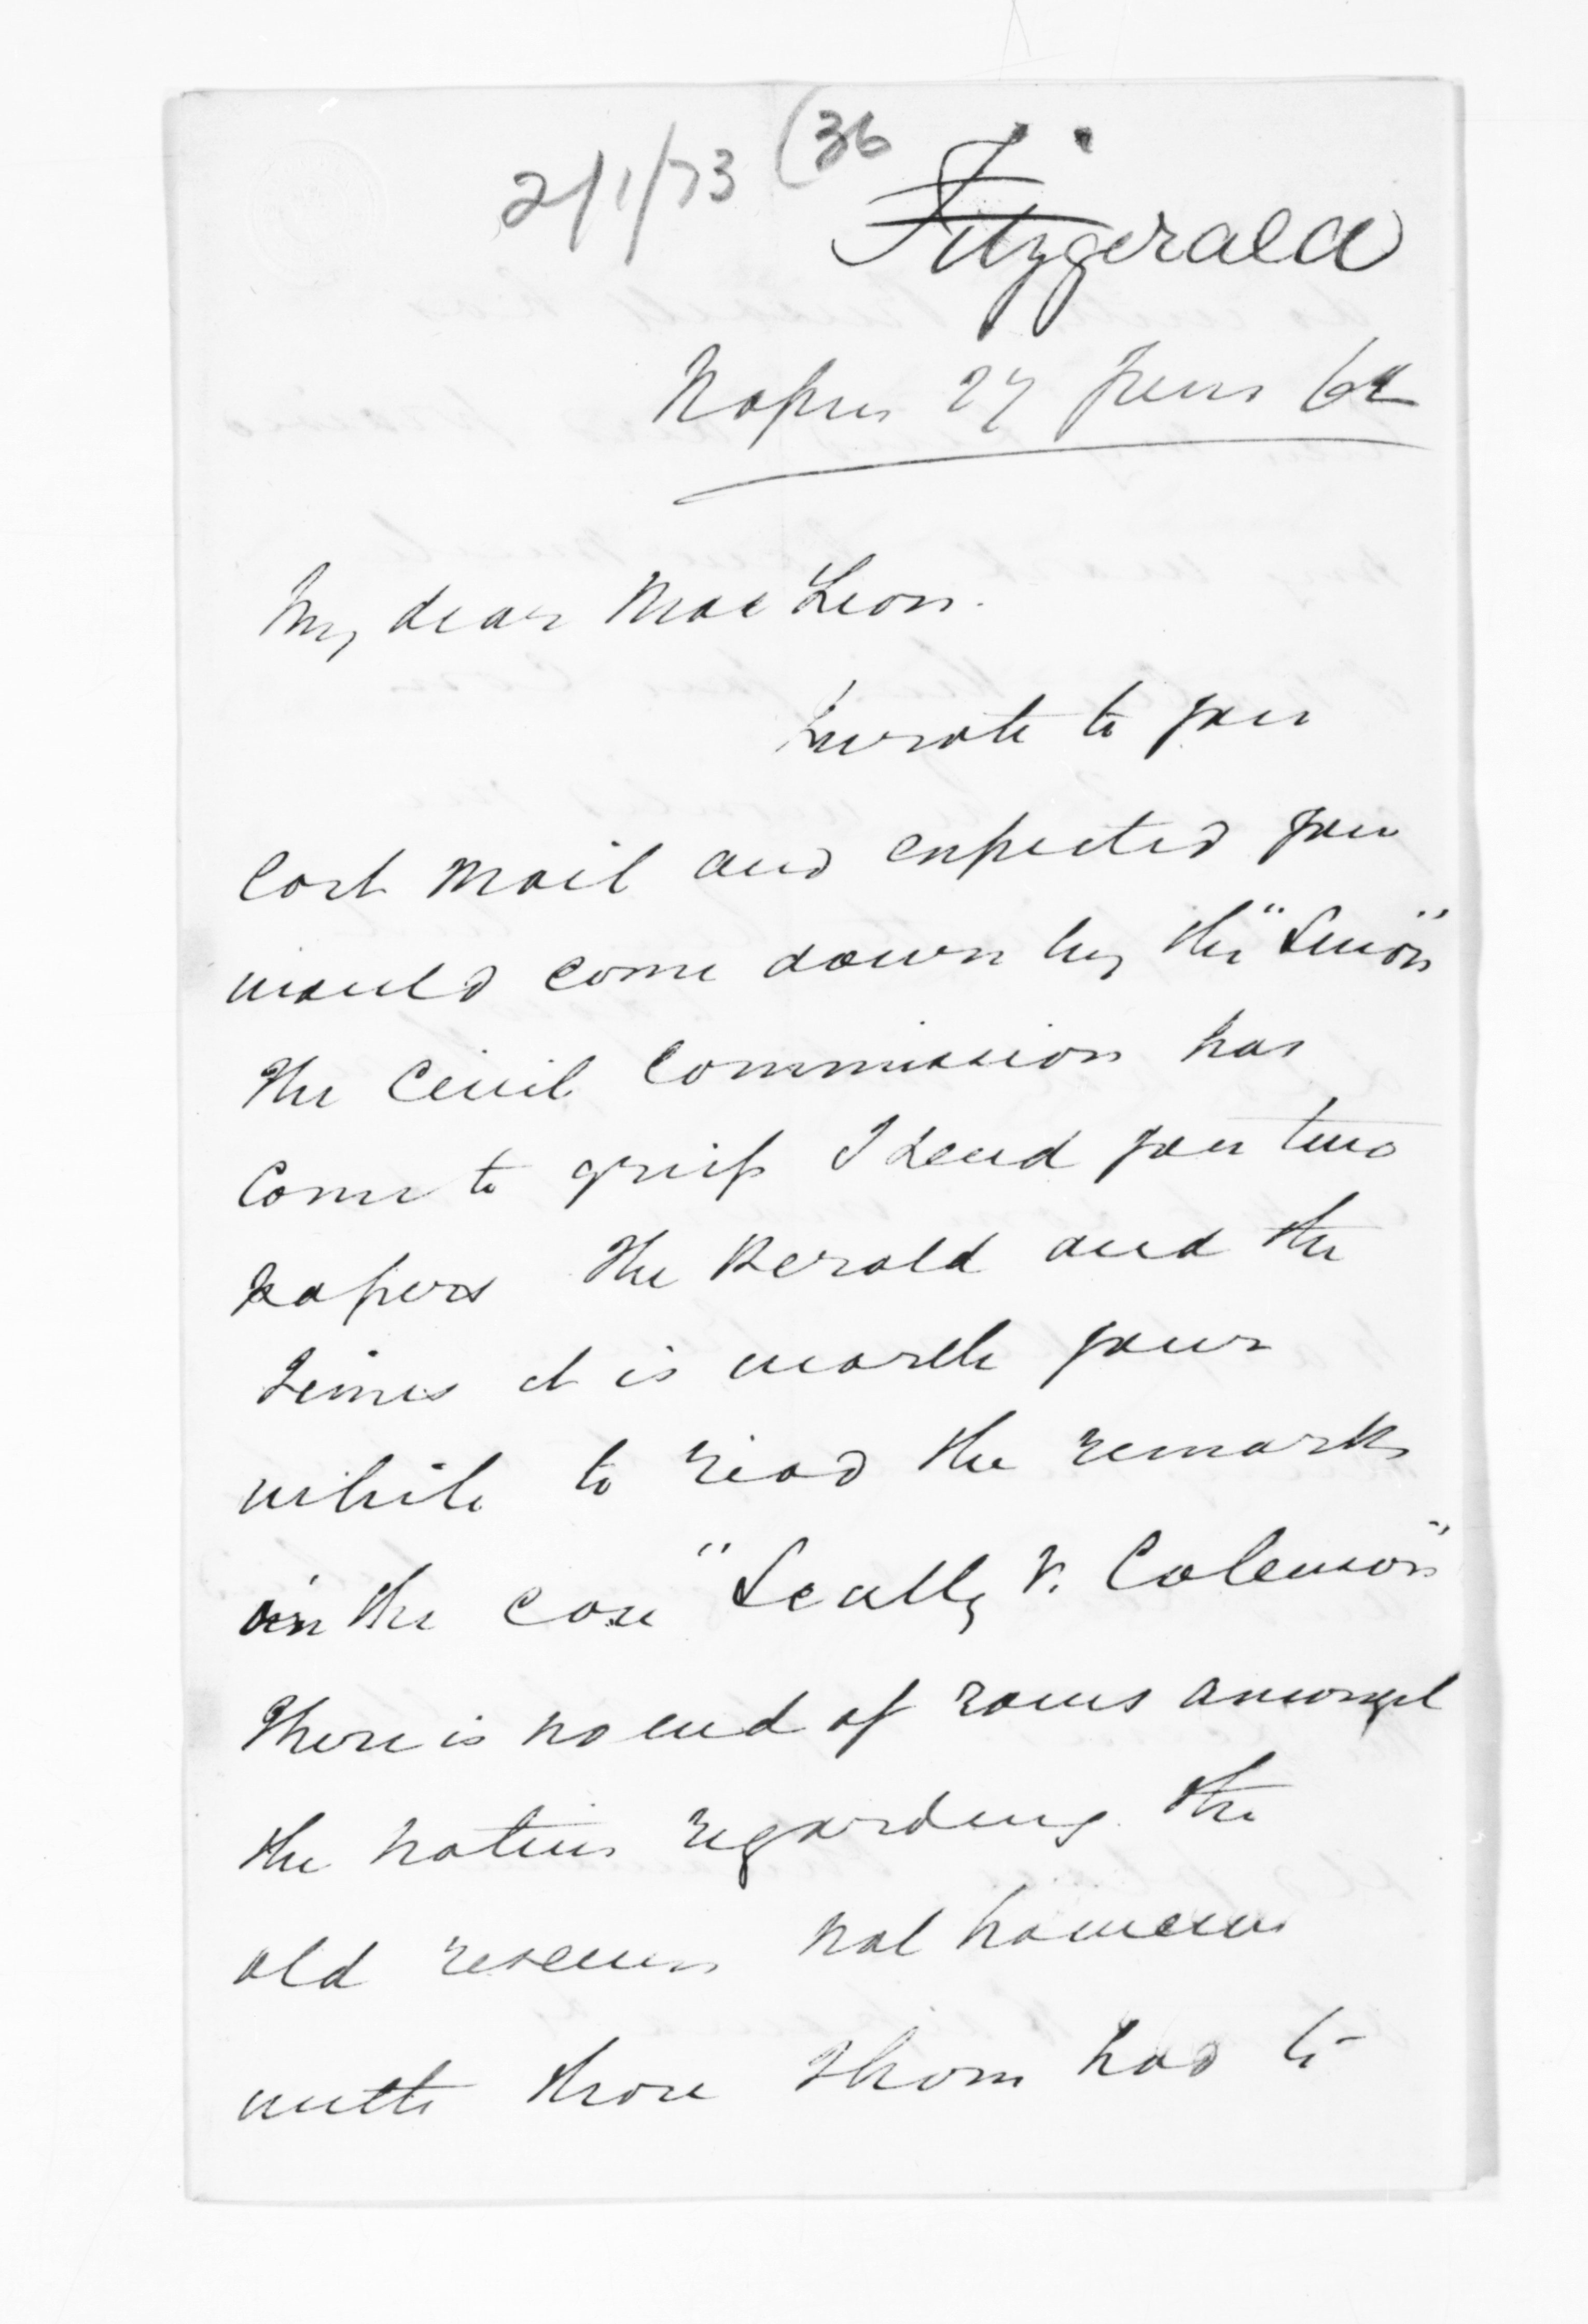 2/1/73 (36
Fitzgerald
Napier 27 June 62
My dear MacLean.
I wrote to you
last mail and expected you
would come down by the "
The Civil Commission has
come to grief I send you two
papers The Herald and the
Times it is worth your
while to read the remarks
in the case "Scully v. Colenso"
There is no end of rows amongst
the natives regarding the
old reserves not however
with those Thom has to